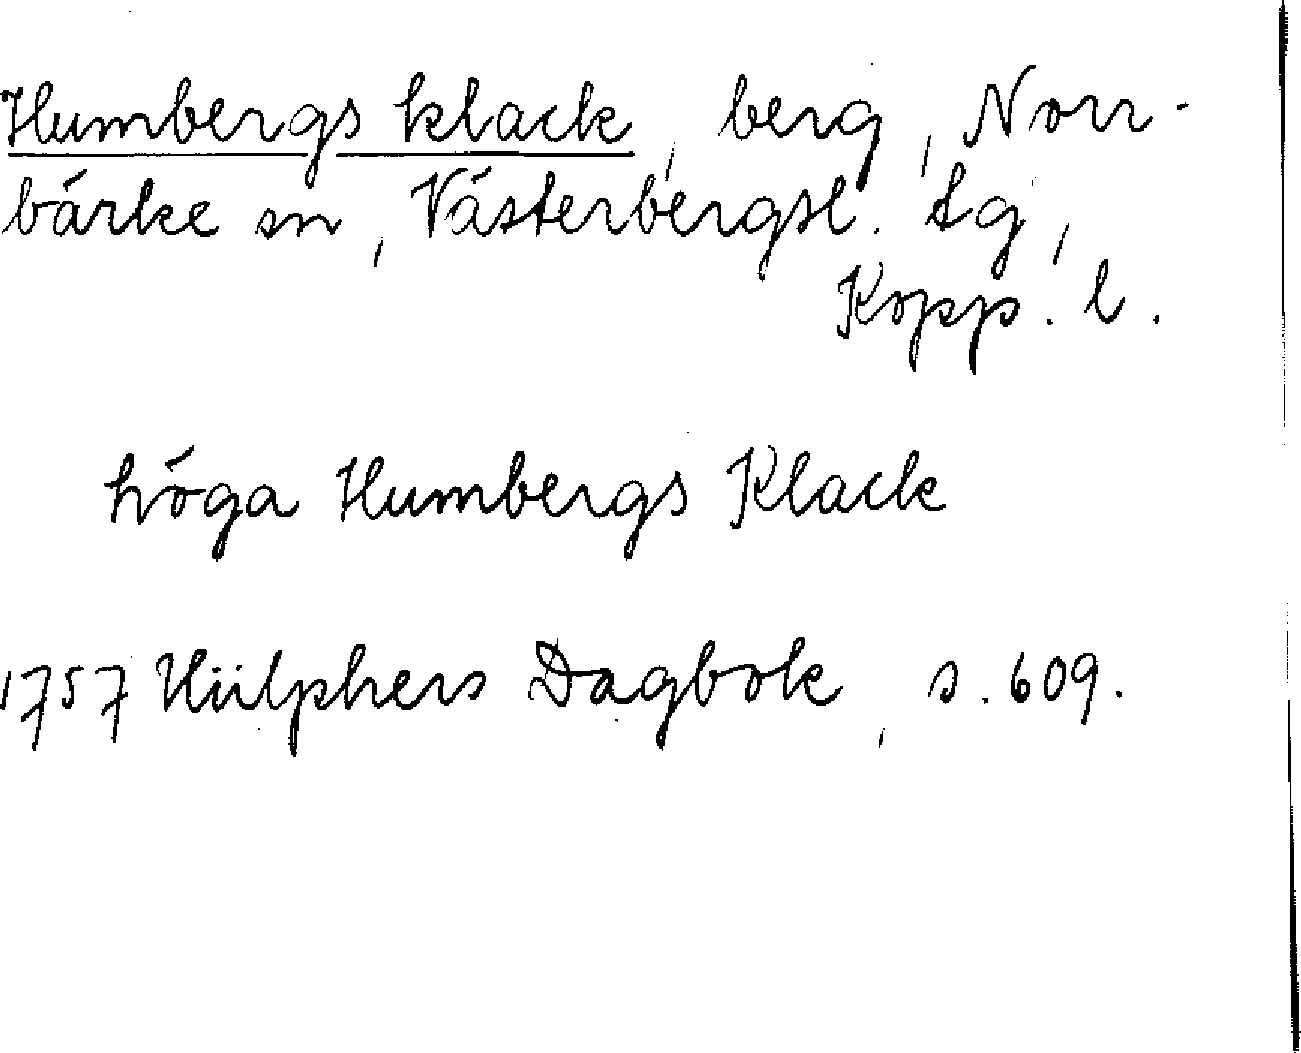 Humbergs klack, berg, Norr-
bärke sn, Västerbergsl. tg,
Kopp. l.
höga Humbergs Klack
1757 Hülphers Dagbok, s. 609.